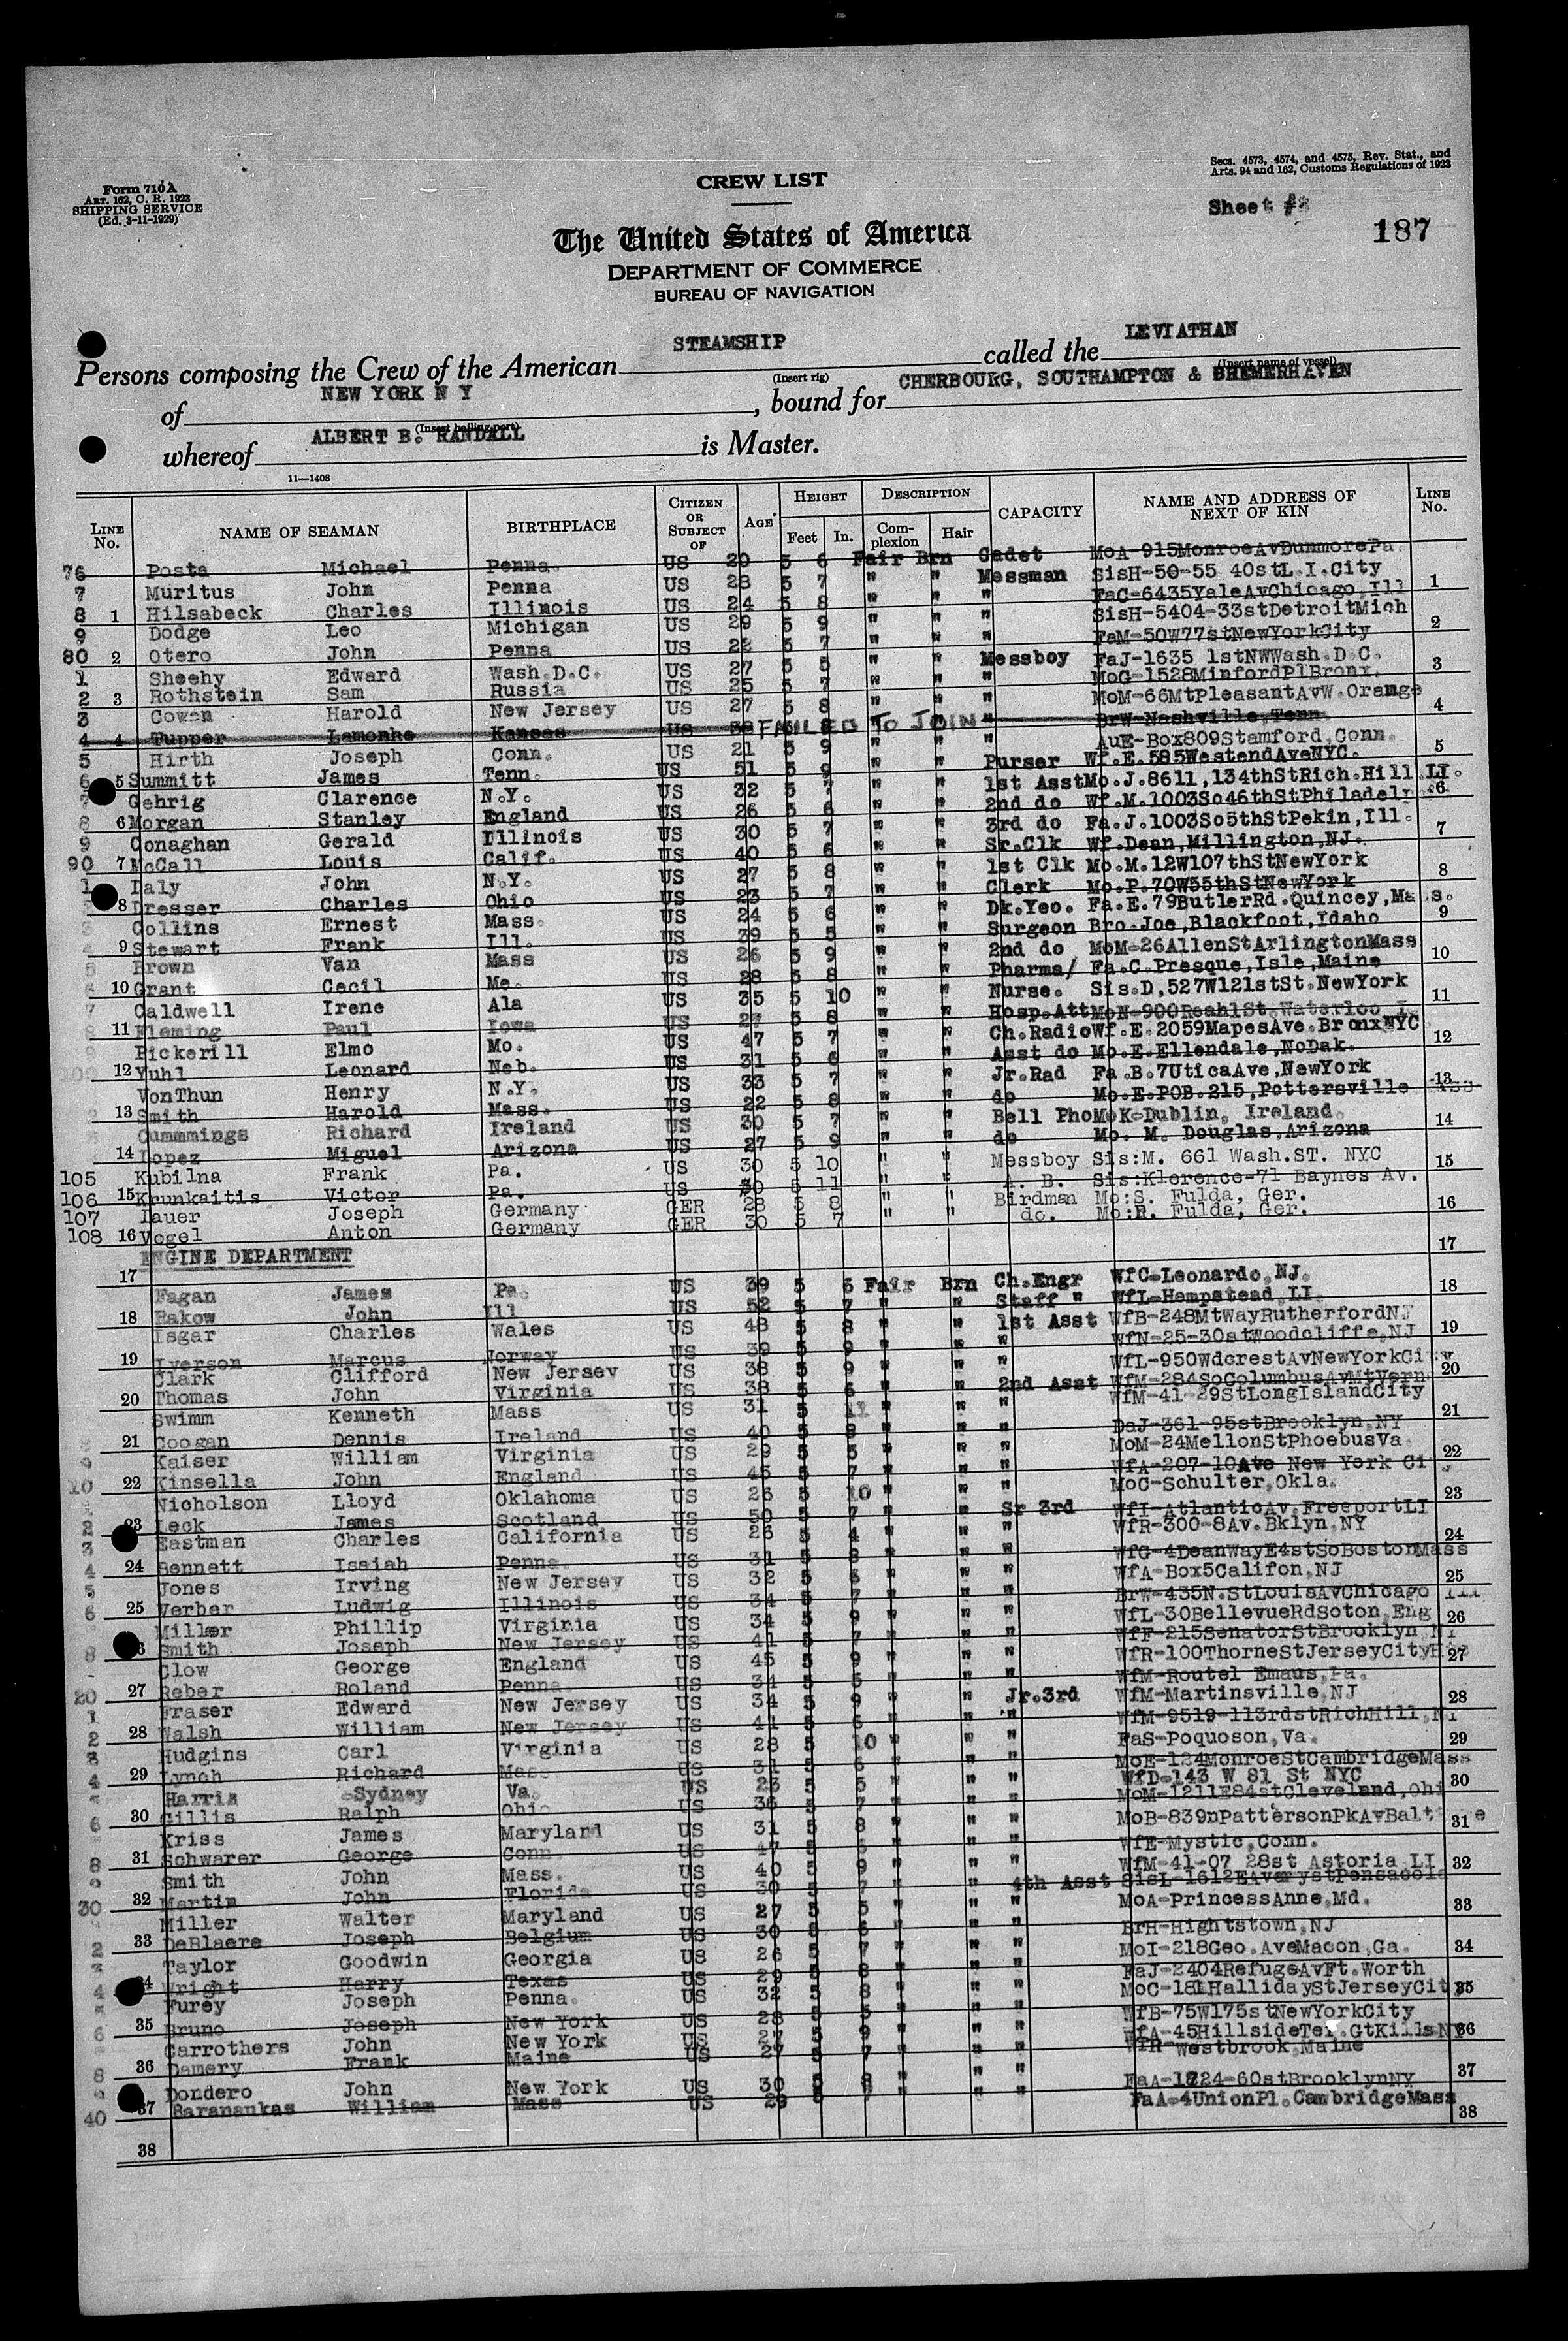 Form 710A
ART. 162, C. R. 1923
SHIPPING SERVICE
(Ed. 3-11-1929)
Secs. 4573, 4574, and 4575, Rev. Stat., and
Arts. 94 and 162, Customs Regulations of 1923
Sheet #
187
CREW LIST
The United States of America
DEPARTMENT OF COMMERCE
BUREAU OF NAVIGATION
Persons composing the Crew of the American STEAMSHIP called the LEVIATHAN
(Insert rig) (Insert name of vessel)
of NEW YORK N Y, bound for CHERBOURG, SOUTHAMPTON & BREMERHAVEN
(Insert hailing port)
whereof ALBERT B. RANDALL is Master.
11—1408
LINE No. NAME OF SEAMAN BIRTHPLACE CITIZEN OR SUBJECT OF AGE HEIGHT Feet In. DESCRIPTION Complexion Hair CAPACITY NAME AND ADDRESS OF NEXT OF KIN LINE No.
76 Posta Michael Penna. US 20 5 6 Fair Brn Cadet MoA-915MonroeAvDunmorePa.
7 Muritus John Penna US 28 5 7 " " Messman SisH-50-55 40stL.I.City 1
8 1 Hilsabeck Charles Illinois US 24 5 8 " " " FaC-6435YaleAvChicago,Ill
9 Dodge Leo Michigan US 29 5 9 " " " SisH-5404-33stDetroitMich 2
80 2 Otero John Penna US 22 5 7 " " " FaM-50W77stNewYorkCity
1 Sheehy Edward Wash.D.C. US 27 5 5 " " Messboy FaJ-1635 1stNWWash.D.C. 3
2 3 Rothstein Sam Russia US 25 5 7 " " " MoG-1528MinfordPlBronx.
3 Cowen Harold New Jersey US 27 5 8 " " " MoM-66MtPleasantAvW.Orange 4
4 4 Tupper Kansas US FAILED TO JOIN BrW-Nashville,Tenn
5 Hirth Joseph Conn. US 21 5 9 " " " AuE-Box809Stamford,Conn. 5
6 5 Summitt James Tenn. US 51 5 9 " " Purser Wf.E.585WestendAveNYC.
7 Gehrig Clarence N.Y. US 32 5 7 " " 1st Asst Mo.J.8611,134thStRich.Hill LI. 6
8 6 Morgan Stanley England US 26 5 6 " " 2nd do Wf.M.1003So46thStPhiladel
9 Conaghan Gerald Illinois US 30 5 7 " " 3rd do Fa.J.1003So5thStPekin,Ill. 7
90 7 McCall Louis Calif. US 40 5 6 " " Sr.Clk Wf.Dean,Millington,NJ.
1 Daly John N.Y. US 27 5 8 " " 1st Clk Mo.M.12W107thStNewYork 8
8 Dresser Charles Ohio US 23 5 7 " " Clerk Mo.P.70W55thStNewYork
Collins Ernest Mass. US 24 5 6 " " Dk.Yeo. Fa.E.79ButlerRd.Quincey,Ma s. 9
9 Stewart Frank Ill. US 39 5 5 " " Surgeon Bro.Joe,Blackfoot,Idaho
Brown Van Mass US 26 5 9 " " 2nd do MoM-26AllenStArlingtonMass 10
10 Grant Cecil Me. US 28 5 8 " " Pharma/ Fa.C.Presque,Isle,Maine
Caldwell Irene Ala US 35 5 10 " " Nurse. Sis.D,527W121stSt.NewYork 11
11 Fleming Paul Iowa US 27 5 8 " " Hosp.Att
Pickerill Elmo Mo. US 47 5 7 " " Ch.Radio Wf.E.2059MapesAve.BronxNYC 12
12 Yuhl Leonard Neb. US 31 5 6 " " Asst do Mo.E.Ellendale,NoDak.
VonThun Henry N.Y. US 33 5 7 " " Jr.Rad Fa.B.7UticaAve,NewYork 13
13 Smith Harold Mass. US 22 5 8 " " do Mo.E.POB.215,Pottersville
Cummmings Richard Ireland US 30 5 7 " " Bell Pho MoK-Dublin, Ireland. 14
14 Lopez Miguel Arizona US 27 5 9 " " do Mo. M. Douglas,Arizona
105 Kubilna Frank Pa. US 30 5 10 " " Messboy Sis:M. 661 Wash.ST. NYC 15
106 15 Krunkaitis Victor Pa. US 30 5 11 " " A. B. Sis:Klorence-71 Baynes Av.
107 Lauer Joseph Germany GER 23 5 8 " " Birdman Mo:S. Fulda, Ger. 16
108 16 Vogel Anton Germany GER 30 5 7 " " do. Mo:R. Fulda, Ger.
17
ENGINE DEPARTMENT
17
Fagan James Pa. US 39 5 6 Fair Brn Ch.Engr WfC-Leonardo,NJ. 18
18 Rakow John Ill US 52 5 7 " " Staff " WfL-Hempstead,LI.
Isgar Charles Wales US 48 5 8 " " 1st Asst WfB-248MtWayRutherfordNJ 19
19 Iverson Marcus Norway US 39 5 9 " " " WfN-25-30stWoodcliffe,NJ
Clark Clifford New Jersey US 38 5 9 " " " WfL-950WdcrestAvNewYorkCity 20
20 Thomas John Virginia US 38 5 6 " " 2nd Asst WfM-284SoColumbusAvMtVern
Swimm Kenneth Mass US 31 5 11 " " " WfM-41-29StLongIslandCity 21
21 Coogan Dennis Ireland US 40 5 8 " " " DaJ-361-95stBrooklyn,NY
Kaiser William Virginia US 29 5 5 " " " MoM-24MellonStPhoebusVa 22
10 22 Kinsella John England US 45 5 7 " " " WfA-207-10Ave New York Ci
Nicholson Lloyd Oklahoma US 26 5 10 " " " MoC-Schulter,Okla. 23
2 23 Leck James Scotland US 50 5 7 " " Sr 3rd WfI-AtlanticAv.FreeportLI
3 Eastman Charles California US 26 5 4 " " " WfR-300-8Av.Bklyn,NY 24
4 24 Bennett Isaiah Penna US 31 5 8 " " " WfG-4DeanWayE4stSoBostonMass
5 Jones Irving New Jersey US 32 5 6 " " " WfA-Box5Califon,NJ 25
6 25 Verber Ludwig Illinois US 34 5 7 " " " BrW-435N.StLouisAvChicago Ill
Miller Phillip Virginia US 34 5 9 " " " WfL-30BellevueRdSoton,Eng 26
8 Smith Joseph New Jersey US 41 5 7 " " " WfF-215SenatorStBrooklyn
Clow George England US 45 5 9 " " " WfR-100ThorneStJerseyCity 27
20 27 Reber Roland Penna US 34 5 5 " " " WfM-Route1 Emaus,Pa.
1 Fraser Edward New Jersey US 34 5 9 " " Jr.3rd WfM-Martinsville,NJ 28
2 28 Walsh William New Jersey US 41 5 6 " " " WfM-9519-113rdstRichHill,
3 Hudgins Carl Virginia US 28 5 10 " " " FaS-Poquoson,Va. 29
4 29 Lynch Richard Mass US 31 5 6 " " " MoE-124MonroeStCambridgeMass
Harris Sydney Va. US 23 5 5 " " " WfD-143 W 81 St NYC 30
6 30 Gillis Ralph Ohio US 36 5 7 " " " MoM-1211E84stCleveland,Ohi
Kriss James Maryland US 31 5 8 " " " MoB-839nPattersonPkAvBalt e 31
8 31 Schwarer George Conn US 47 5 6 " " " WfE-Mystic,Conn.
Smith John Mass. US 40 5 9 " " " WfM-41-07 28st Astoria LI 32
30 32 Martin John Florida US 30 5 7 " " 4th Asst SisL-1612EAverystPensacola
Miller Walter Maryland US 27 5 5 " " " MoA-PrincessAnne,Md. 33
2 33 DeBlaere Joseph Belgium US 30 5 6 " " " BrH-Hightstown,NJ
Taylor Goodwin Georgia US 26 5 7 " " " MoI-218Geo.AveMacon,Ga. 34
4 34 Wright Harry Texas US 29 5 8 " " " FaJ-2404RefugeAvFt.Worth
Furey Joseph Penna. US 32 5 8 " " " MoC-181HallidayStJerseyCity 35
6 35 Bruno Joseph New York US 28 5 5 " " " WfB-75W175stNewYorkCity
Carrothers John New York US 27 5 9 " " " WfA-45HillsideTer.GtKillsNY 36
8 36 Damery Frank Maine US 27 5 7 " " " WfR-Westbrook,Maine
Dondero John New York US 30 5 8 " " " FaA-1724-60stBrooklynNY 37
40 37 Baranaukas William Mass US 29 5 " " " FaA-4UnionPl.CambridgeMass
38
38